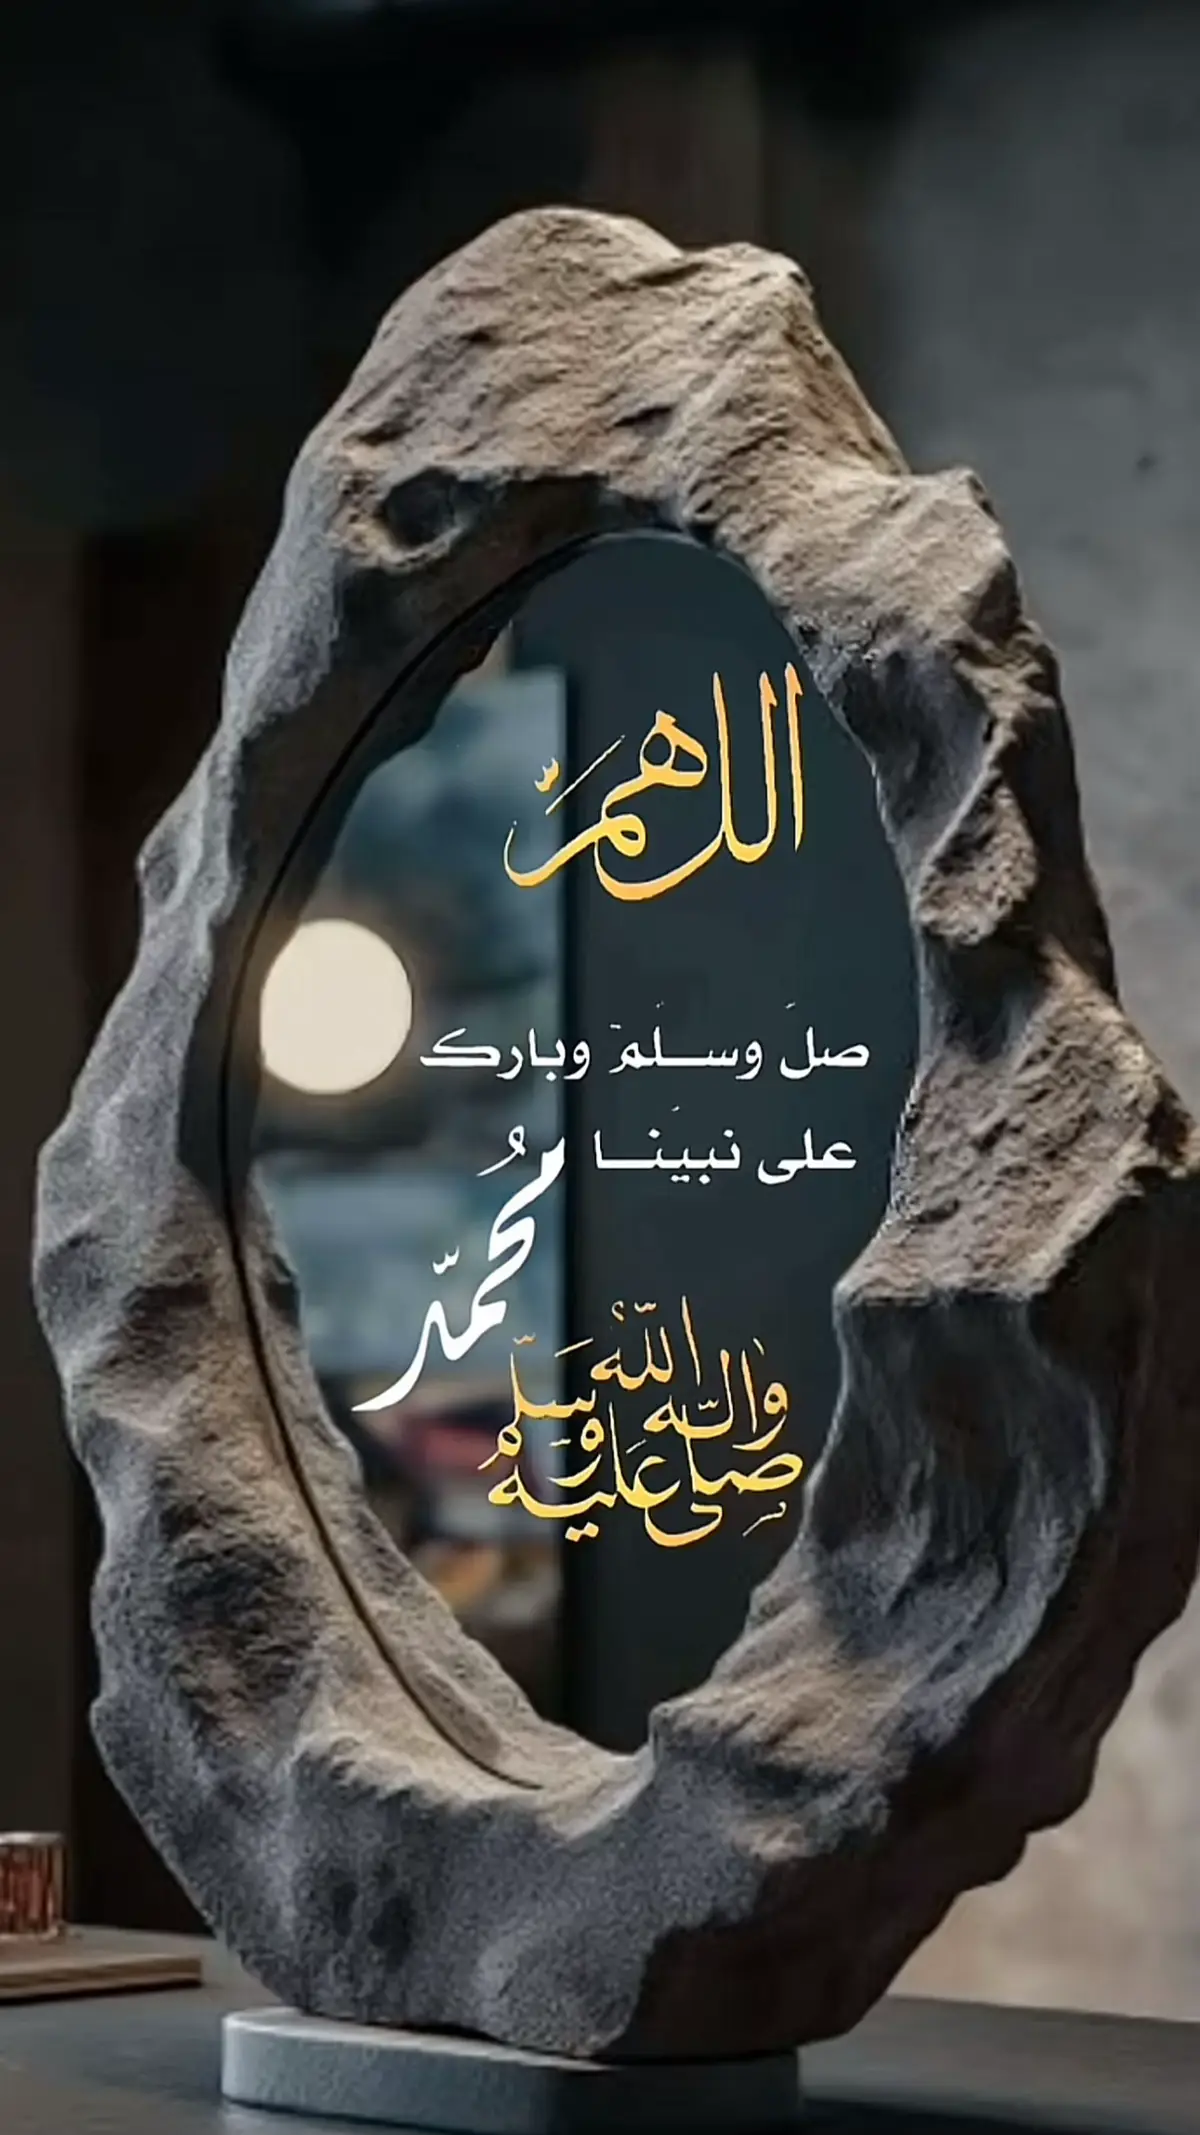 اللهمَّ
صلَ وسلَمَ وبارك
على نبيَنا مُحمّد
صلى الله عليه وآله وسلم